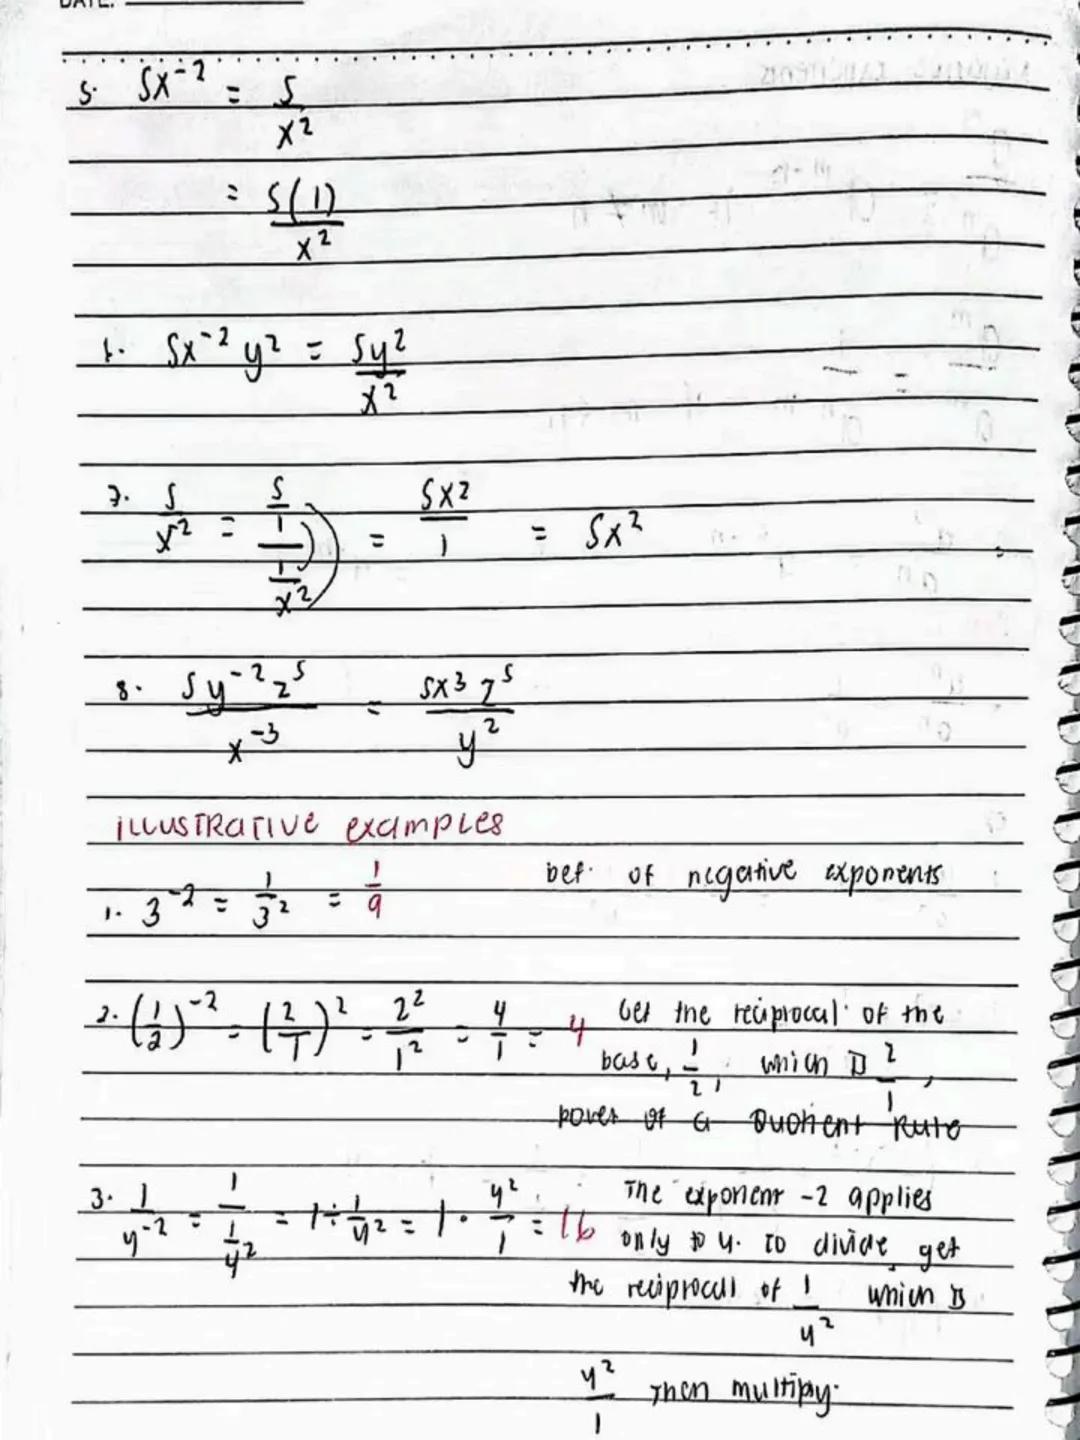 DATE:
5. 5x⁻² = 5/x²
= 5(1)/x²
6. 5x⁻² y² = 5y²/x²
7. 5/x² = 5/1/1/x² = 5x²/1 = 5x²
8. 5y⁻²z⁵/x⁻³ = 5x³z⁵/y²
ILLUSTRATIVE examples
1. 3⁻² = 1/3² = 1/9 Def. of negative exponents
2. (1/2)⁻² = (2/1)² = 2²/1² = 4/1 = 4 Get the reciprocal of the
base, 1/2, which is 2/1,
power of a Quotient Rule
3. 1/4⁻² = 1/1/4² = 1÷1/4² = 1 · 4²/1 = 16 The exponent -2 applies
only to 4. To divide, get
the reciprocal of 1/4² which is
4²/1 Then multiply.